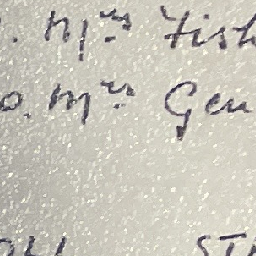 . Mrs Fish
0. Mrs Gen
ST